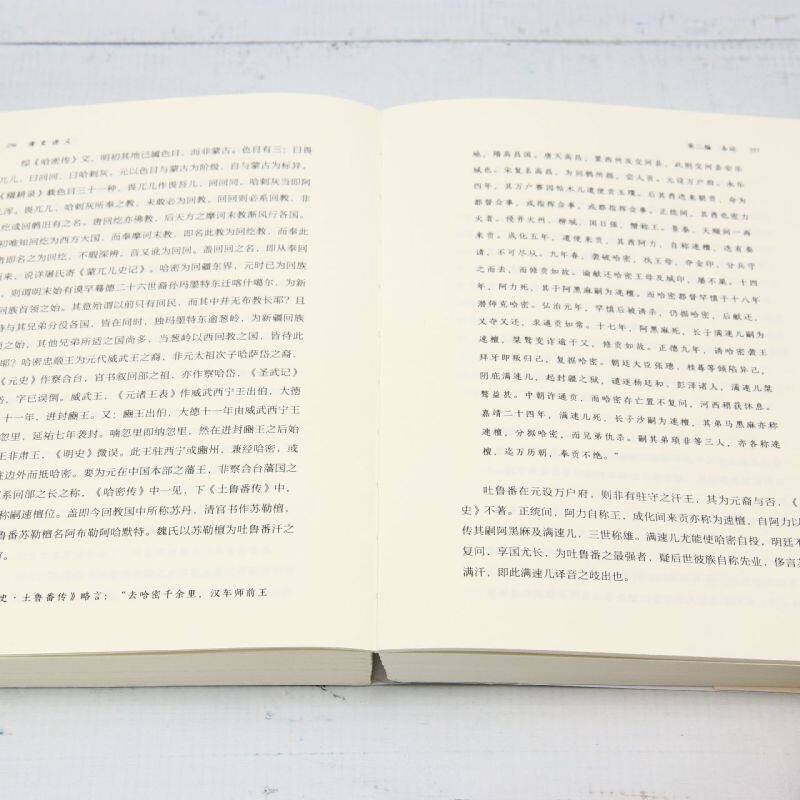 256 清史讲义
综《哈密传》文，明初其地已属色目，而非蒙古。色目有三：曰畏
兀儿，曰回回，曰哈剌灰。元以色目与蒙古为阶级，自与蒙古为标异，
《辍耕录》载色目三十一种，畏兀儿作畏吾儿，回回同，哈剌灰当即阿
儿浑。畏兀儿、哈剌灰所奉之教，未敢必为回教，回回则必系回教，非
纥或回鹘旧有之名。唐回纥亦佛教，后天方之摩诃末教渐风行各国。
初唯知回纥为西方大国，而奉摩诃末教，即名此教为回纥教，而奉此
者即名之为回纥，不暇深辨，音又讹为回回。盖回回之名，即从奉回
而来，说详屠氏寄《蒙兀儿史记》。哈密为回疆东界，元时已为回族
，则谓明末始有谟罕蓦德二十六世裔孙玛墨特东迁喀什噶尔，为新
回族首领之始。其意殆谓以前只有回民，而其中并无布教长耶？且
特与其兄弟分役各国，皆在同时，独玛墨特东逾葱岭，为新疆回族
始，其他兄弟所适之国尚多，当葱岭以西回教之国，皆待此
耶？哈密忠顺王为元代威武王之裔，非元太祖次子哈萨岱之裔，
《元史》作察合台，官书叙回部之祖，亦作察哈岱，《圣武记》
，字已误倒。威武王，《元诸王表》作威武西宁王出伯，大德
十一年，进封豳王。又：豳王出伯，大德十一年由威武西宁王
忽里，延祐七年袭封。喃忽里即纳忽里，然在进封豳王之后始
王非肃王，《明史》微误。此王驻西宁或豳州，兼经哈密，或
驻边外而抵哈密。要为元在中国本部之藩王，非察合台藩国之
系回部之长之称，《哈密传》中一见，下《土鲁番传》中，
称嗣速檀位。盖即今回教国中所称苏丹，清官书作苏勒檀，
鲁番苏勒檀名阿布勒阿哈默特。魏氏以苏勒檀为吐鲁番汗之
史·土鲁番传》略言：“去哈密千余里，汉车师前王
第二编 各论 257
地，隋高昌国。唐灭高昌，置西州及交河县，此则交河县安乐
城也。宋复名高昌，为回鹘所据，尝入贡。元设万户府。永乐
四年，其万户赛因帖木儿遣使贡玉璞。后其酋迭来朝贡，命为
都督佥事，或指挥佥事，或都指挥佥事。正统间，其酋也密力
火者。侵并火州、柳城，国日强，僭称王。景泰、天顺间一再
来贡。成化五年，遣使来贡，其酋阿力，自称速檀，迭有奏
请，不可尽从。九年春，袭破哈密，执王母，夺金印，分兵守
之而去，而修贡如故。谕献还哈密王母及城印，屡不果。十四
年，阿力死，其子阿黑麻为速檀。而哈密都督罕慎于十八年
潜师克哈密。弘治元年，罕慎后被诱杀，仍据哈密，后献还，
又夺又还，求通贡如常。十七年，阿黑麻死，长子满速儿嗣为
速檀，桀骜变诈逾于父，修贡如故。正德九年，诱哈密袭王
拜牙即叛归己，复据哈密。朝廷大臣张璁、桂萼等倾陷异己，
阴庇满速儿，起封疆之狱，谴逐杨廷和、彭泽诸人，满速儿桀
骜益甚。中朝许通贡，而哈密存亡置不复问，河西稍获休息。
嘉靖二十四年，满速儿死，长子沙嗣为速檀，其弟马黑麻亦称
速檀，分据哈密，而兄弟仇杀。嗣其弟琐非等三人，亦各称速
檀，迄万历朝，奉贡不绝。”
吐鲁番在元设万户府，则非有驻守之汗王，其为元裔与否，《
史》不著。正统间，阿力自称王，成化间来贡亦称为速檀，自阿力以
传其嗣阿黑麻及满速儿，三世称雄。满速儿尤能使哈密自投，明廷不
复问，享国尤长，为吐鲁番之最强者，疑后世彼族自称先业，侈言苏
满汗，即此满速儿译音之歧出也。